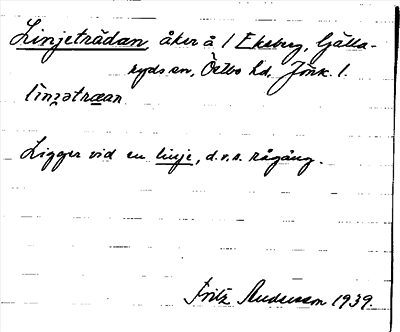 Linjeträdan, åker å 1 Ekeberg, Gälla-
ryds sn, Östbo hd, Jönk. l.
lìnjətræan
Ligger vid en linje, d.v.s. rågång.
Fritz Andersson 1939.